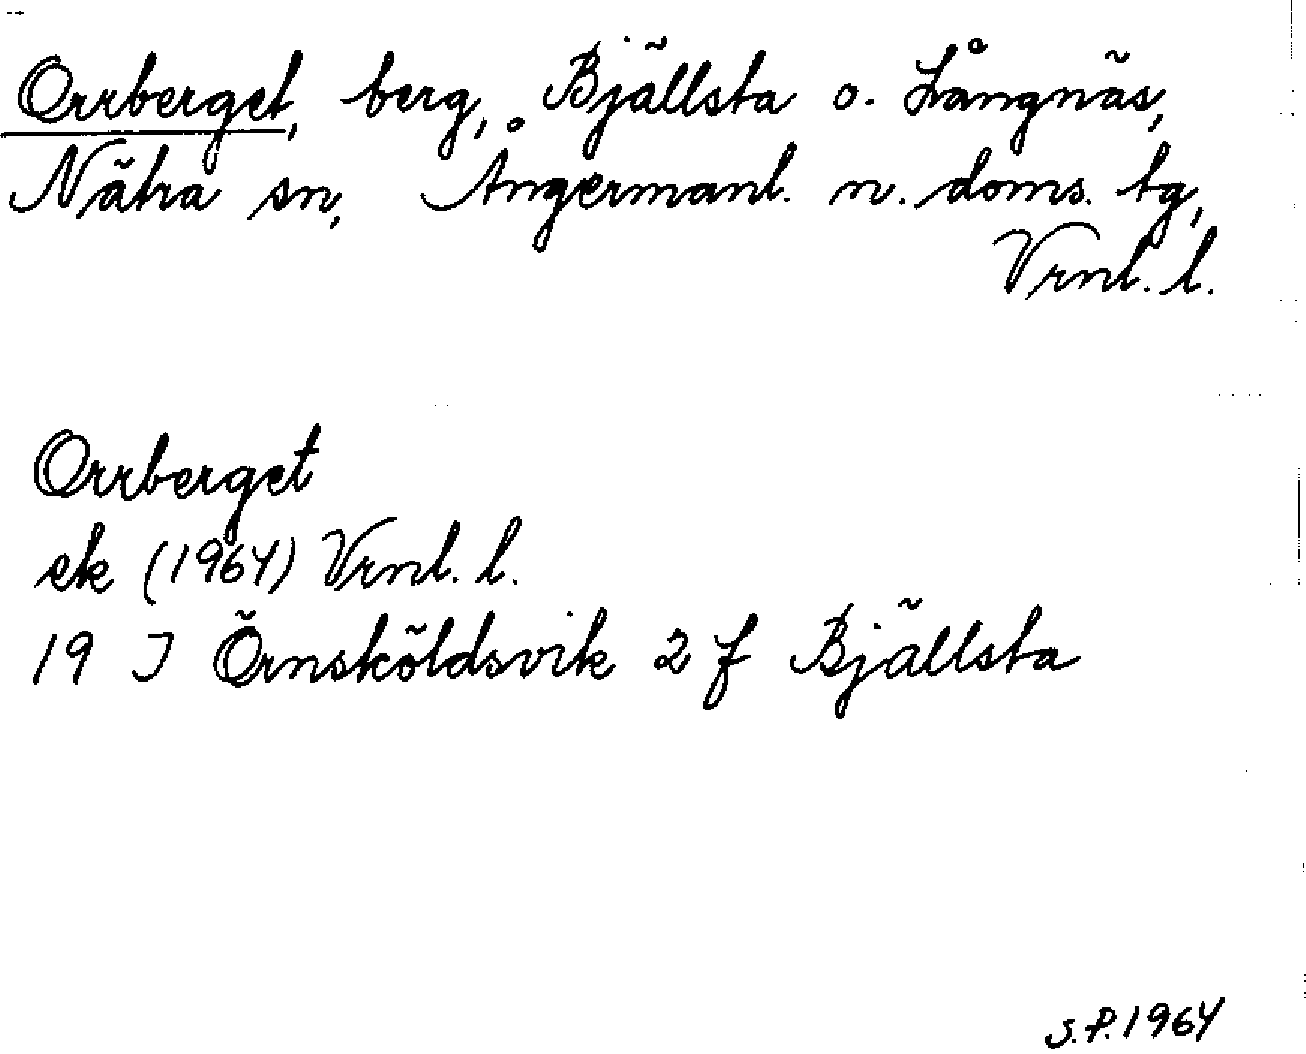 Orrberget, berg, Bjällsta o. Långnäs,
Nätra sn, Ångermanl. n. doms. tg,
Vrnl. l.
Orrberget
ek (1964) Vrnl. l.
19 J Örnsköldsvik 2 f Bjällsta
S.P. 1964